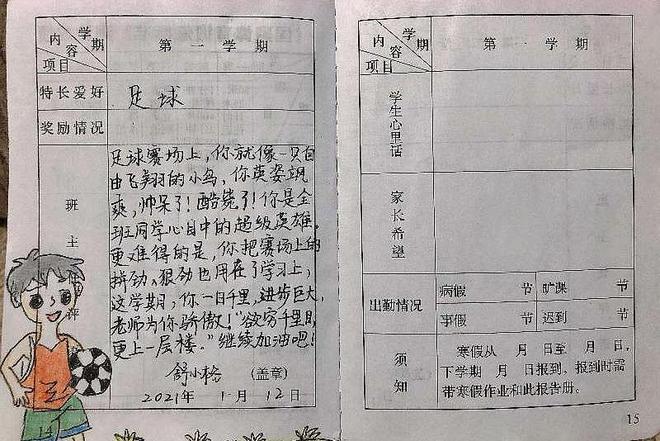 内容 学期
项目
第一学期
特长爱好 足球
奖励情况
班主
评
足球赛场上，你就像一只自
由飞翔的小鸟，你英姿飒
爽，帅呆了！酷毙了！你是全
班同学心目中的超级英雄。
更难得的是，你把赛场上的
拼劲、狠劲也用在了学习上，
这学期，你一日千里，进步巨大，
老师为你骄傲！“欲穷千里目，
更上一层楼。”继续加油吧！
舒小 （盖章）
2021年 1月 12日
14
内容 学期
项目
第一学期
学生心里话
家长希望
出勤情况
病假 节 旷课 节
事假 节 迟到 节
须知
寒假从 月 日至 月 日，
下学期 月 日报到，报到时需
带寒假作业和此报告册。
15